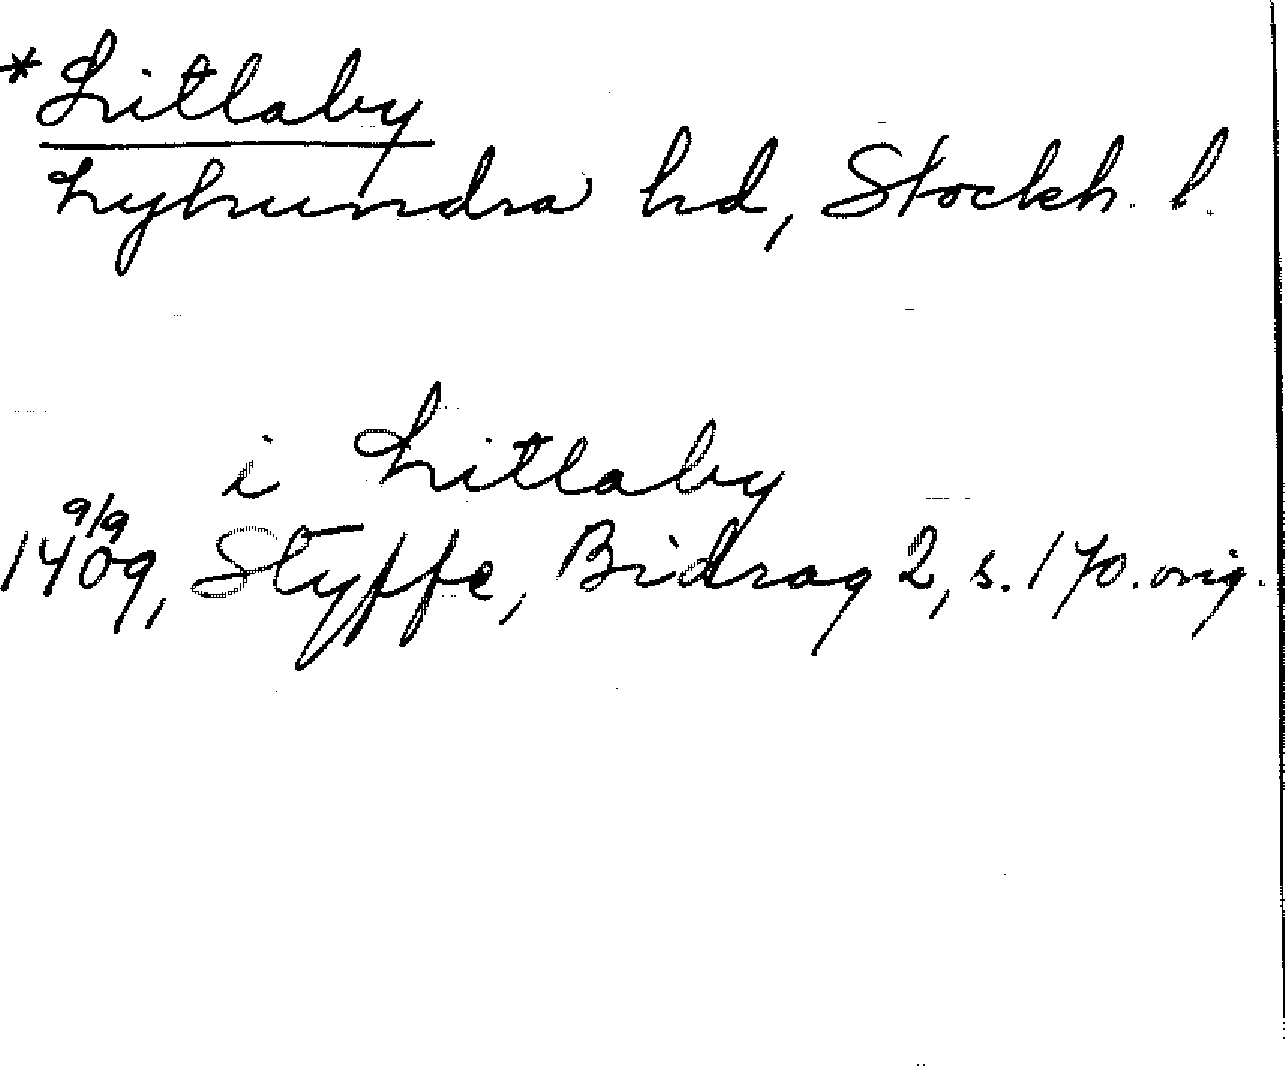 *Litlaby
Lyhundra hd, Stockh. l.
i Litlaby
9/9
1409, Styffe, Bidrag 2, s. 170. orig.